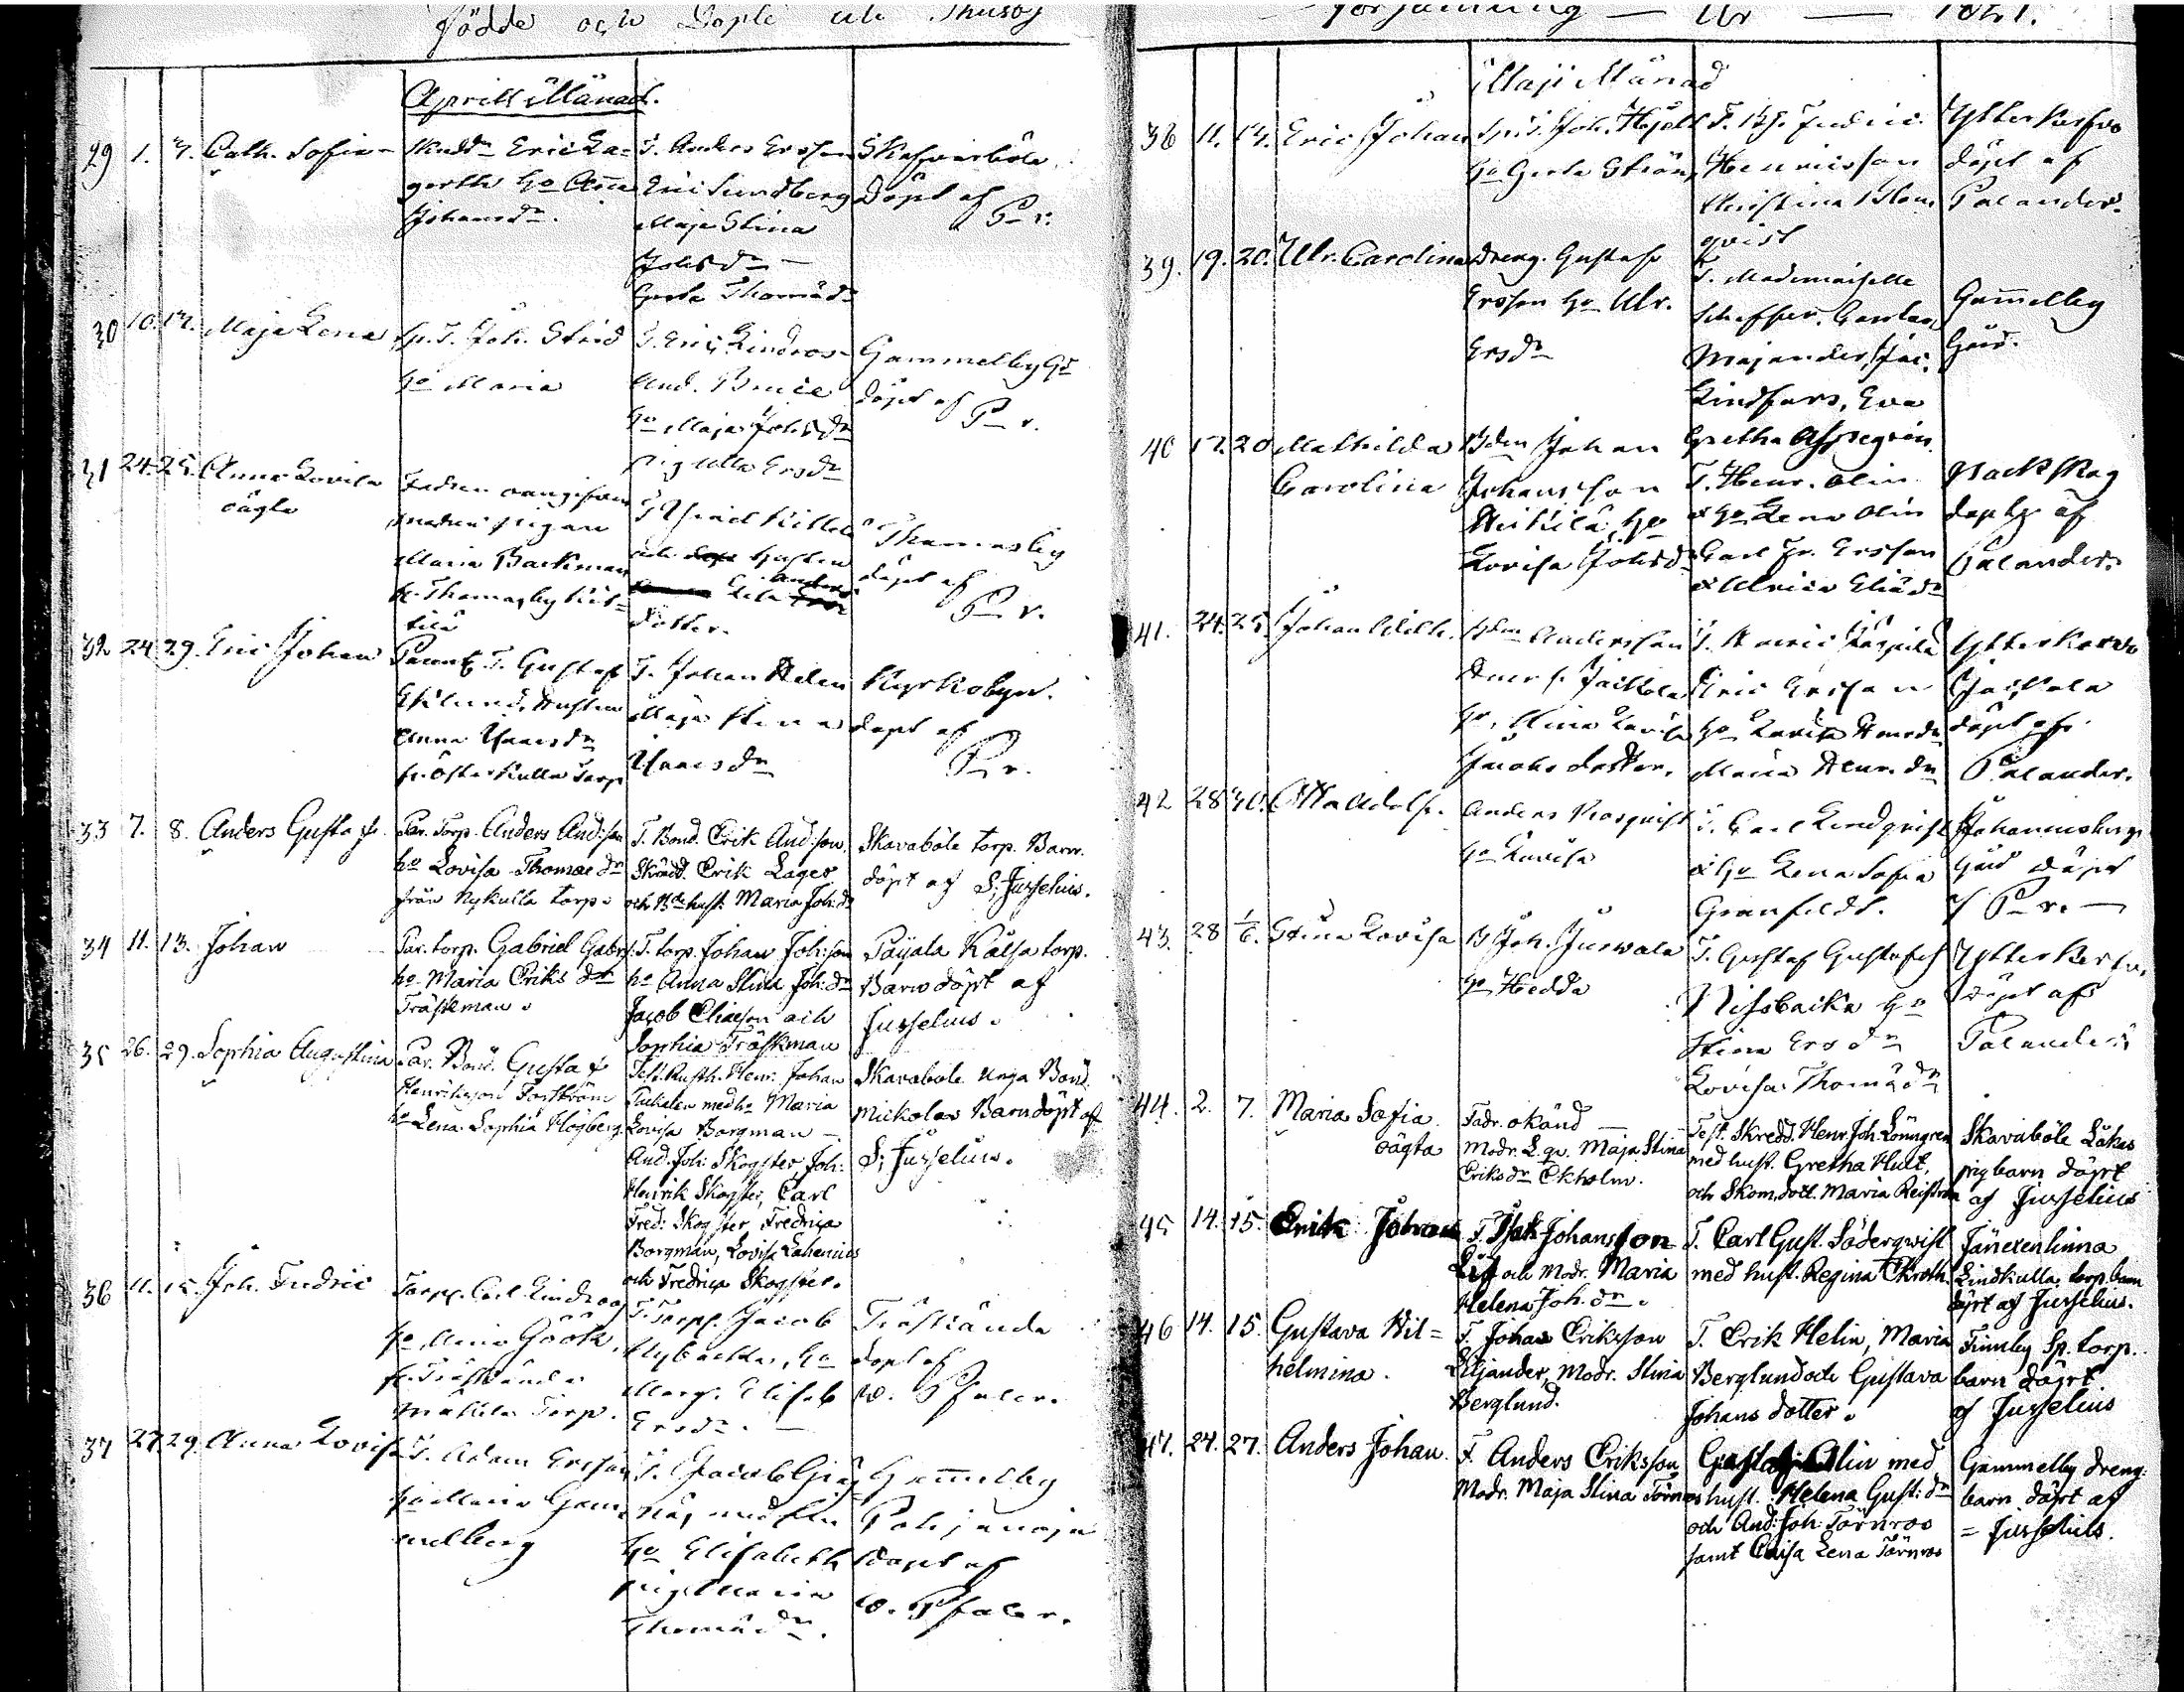 Födde och Döpte uti Thusby
Aprill Månad.
29 1. 3. Cath. Sofia
Skrdd Eric La=
gerth ho Anna
Johansdr.
T. Anders Ersson
Eric Sundberg
Maja Stina
Johsdr
Greta Thomædr
Skafvarböle
döpt af
P r.
30 10. 12. Maja Lena
Sp. T. Joh. Strid
ho Maria
T. Eric Lindros
And.
ho Maja Johsdr
pig Ulla Ersdr
Gammelby Gd
döpt af
P r.
31 24. 25. Anna Lovisa
oägta
Fadren oangifven
modren pigan
Maria Backman
fr. Thomasby Kut=
tila
och Gusten
Anders
dotter.
Thomasby
döpt af
P r.
32 24 29. Eric Johan
T. Gustaf
Hustru
Anna
fr. Österkulla Torp
T. Johan Helen
Maja Stina
Kyrkobyn.
döpt af
P r.
33 7. 8. Anders Gustaf
Par. Torp. Anders And:son
ho Lovisa Thomae dr
från Nykulla torp.
T. Bond. Erik And:son
Skrädd. Erik Lager
och Bde hust. Maria Joh:dr
Skavaböle torp. Barn.
döpt af S; Jusselius.
34 11. 13. Johan
Par. torp. Gabriel Gabr:s.
ho Maria Eriks dr
Träskman.
T. torp. Johan Joh:son
ho Anna Stina Joh:dr
Jacob Eliaeson och
Sophia Träskman
Paijala Kålsa torp.
Barn döpt af
Jusselius.
35 26. 29. Sophia Augustina
Par. Bond. Gustaf
Henriksson Forsström
ho Lena Sophia Högberg
Test. Rusth. Henr. Johan
Tuckalen med ho Maria
Lovisa Borgman
And. Joh: Skogster, Joh:
Henrik Skogster, Carl
Fred: Skogster, Fredrica
Borgman, Lovisa Lahenius
och Fredrica Skogster.
Skavaböle unga Bond.
Mickolas Barn döpt af
S; Jusselius.
36 11. 15. Joh. Fredric
Torpr. Carl Lindroos
ho Anna Göök
fr. Träskända
Torp.
T. Torpr. Jacob
Nybacka, ho
Marg. Elisab
Ersdr.
Träskända
döpt af
W. Pfaler.
37 27. 29. Anna Lovisa
T. Adam Ersson
ho Maria Gam
melberg
ho Elisabeth
pig Maria
Thomædr.
Gammelby
Pohjanoja
döpt af
W. Pfaler.
Församling — År — 1841.
Maji Månad
38 11. 13. Eric Johan
Sp. T. Joh. Hjelt
ho Greta Ström
T. By. Fredric
Henricsson
Christina Blom
qvist
Ytterkerfvo
döpt af
Palander.
39. 19. 20. Ulr. Carolina
Dreng. Gustaf
Ersson ho Ulr.
Ersdr
T. Mademoiselle
Scheffer, Gustav
Majander, Jac.
Lindfors, Eva
Gretha Aspegren.
Gammelby
Gård.
40 17. 20 Mathilda
Carolina
Bden Johan
Johansson
Heikilä, ho
Lovisa Johsdr
T. Henr. Olin
& ho Lena Olin
Carl Fr. Ersson
& Ulrica Eliædr
Nackskog
döpt af
Palander.
41. 24. 25. Johan Wilh.
Bden Andersson
Jäckola
ho, Anna Lovisa
Jacobs dotter.
Eric Ersson
ho Lovisa Henrdr
Maria Henr. dr
Ytterkervo
Jäckola
döpt af
Palander.
42 28 30. Otto Adolf.
Anders Rosqvist
ho Lovisa
T. Carl Lindqvist
& ho Lena Sofia
Granfeldt.
Johannisberg
Gård döpt
af P r. —
43. 28 1/6. Stina Lovisa
B Joh. Juswala
ho Hedda
T. Gustaf Gustafss
Nissbacka ho
Stina Ersdr
Lovisa Thomædr
Ytterkerfvo
döpt af
Palander
44. 2. 7. Maria Sofia
oägta
Fadr. okänd
Modr. L. qv. Maja Stina
Eriks dr Ekholm.
Test. Skredd. Henr. Joh. Lönngren
med hust. Gretha Hult,
och Skom.dott. Maria Reiström
Skavaböle Lökas
pig barn döpt
af Jusselius
45 14. 15. Erik Johan
T. Isak Johansson
Löf och Modr. Maria
Helena Joh. dr.
T. Carl Gust. Söderqwist
med hust. Regina Ekroth.
Jänexenlinna
Lindkulla, torp. barn
döpt af Jusselius.
46 14. 15. Gustava Wil=
helmina.
F. Johan Eriksson
Liljander, Modr. Stina
Berglund.
T. Erik Helin, Maria
Berglund och Gustava
Johans dotter.
Finnby Sp. torp.
barn döpt
af Jusselius
47. 24. 27. Anders Johan.
F. Anders Eriksson
Modr. Maja Stina Törnroos
Gustaf Olin med
hust. Helena Gust: dr
och And: Joh: Törnroo
samt Caisa Lena Törnroo
Gammelby dreng.
barn döpt af
= Jusselius.